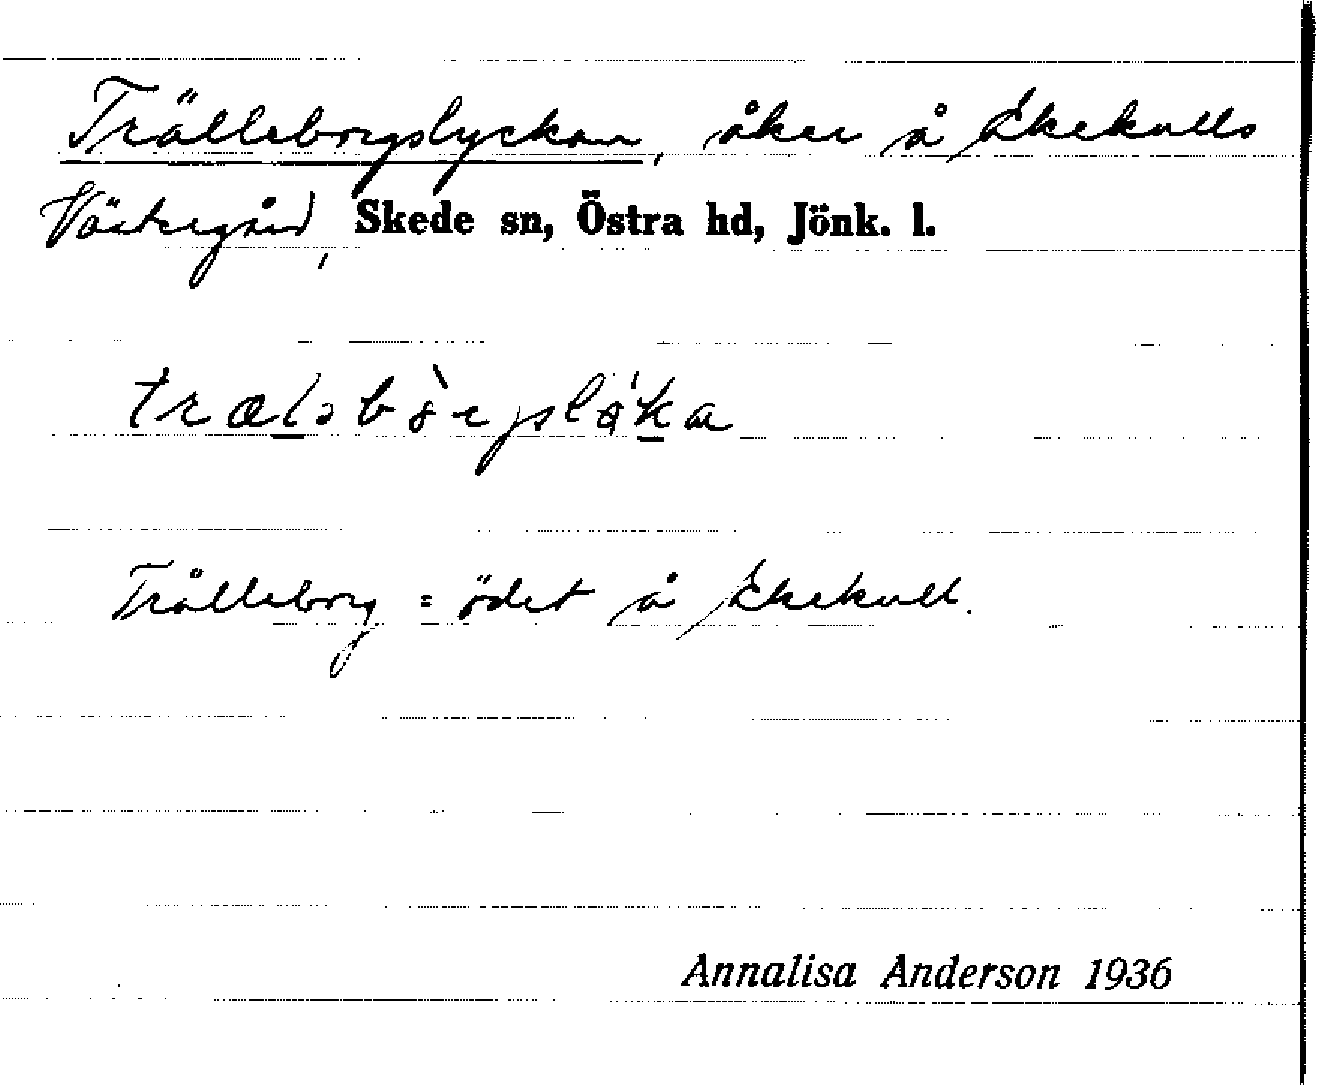 Trälleborgslyckan, åker å Ekekulls
Västergård, Skede sn, Östra hd, Jönk. l.
Trålleborg = ödet å Ekekull.
Annalisa Anderson 1936